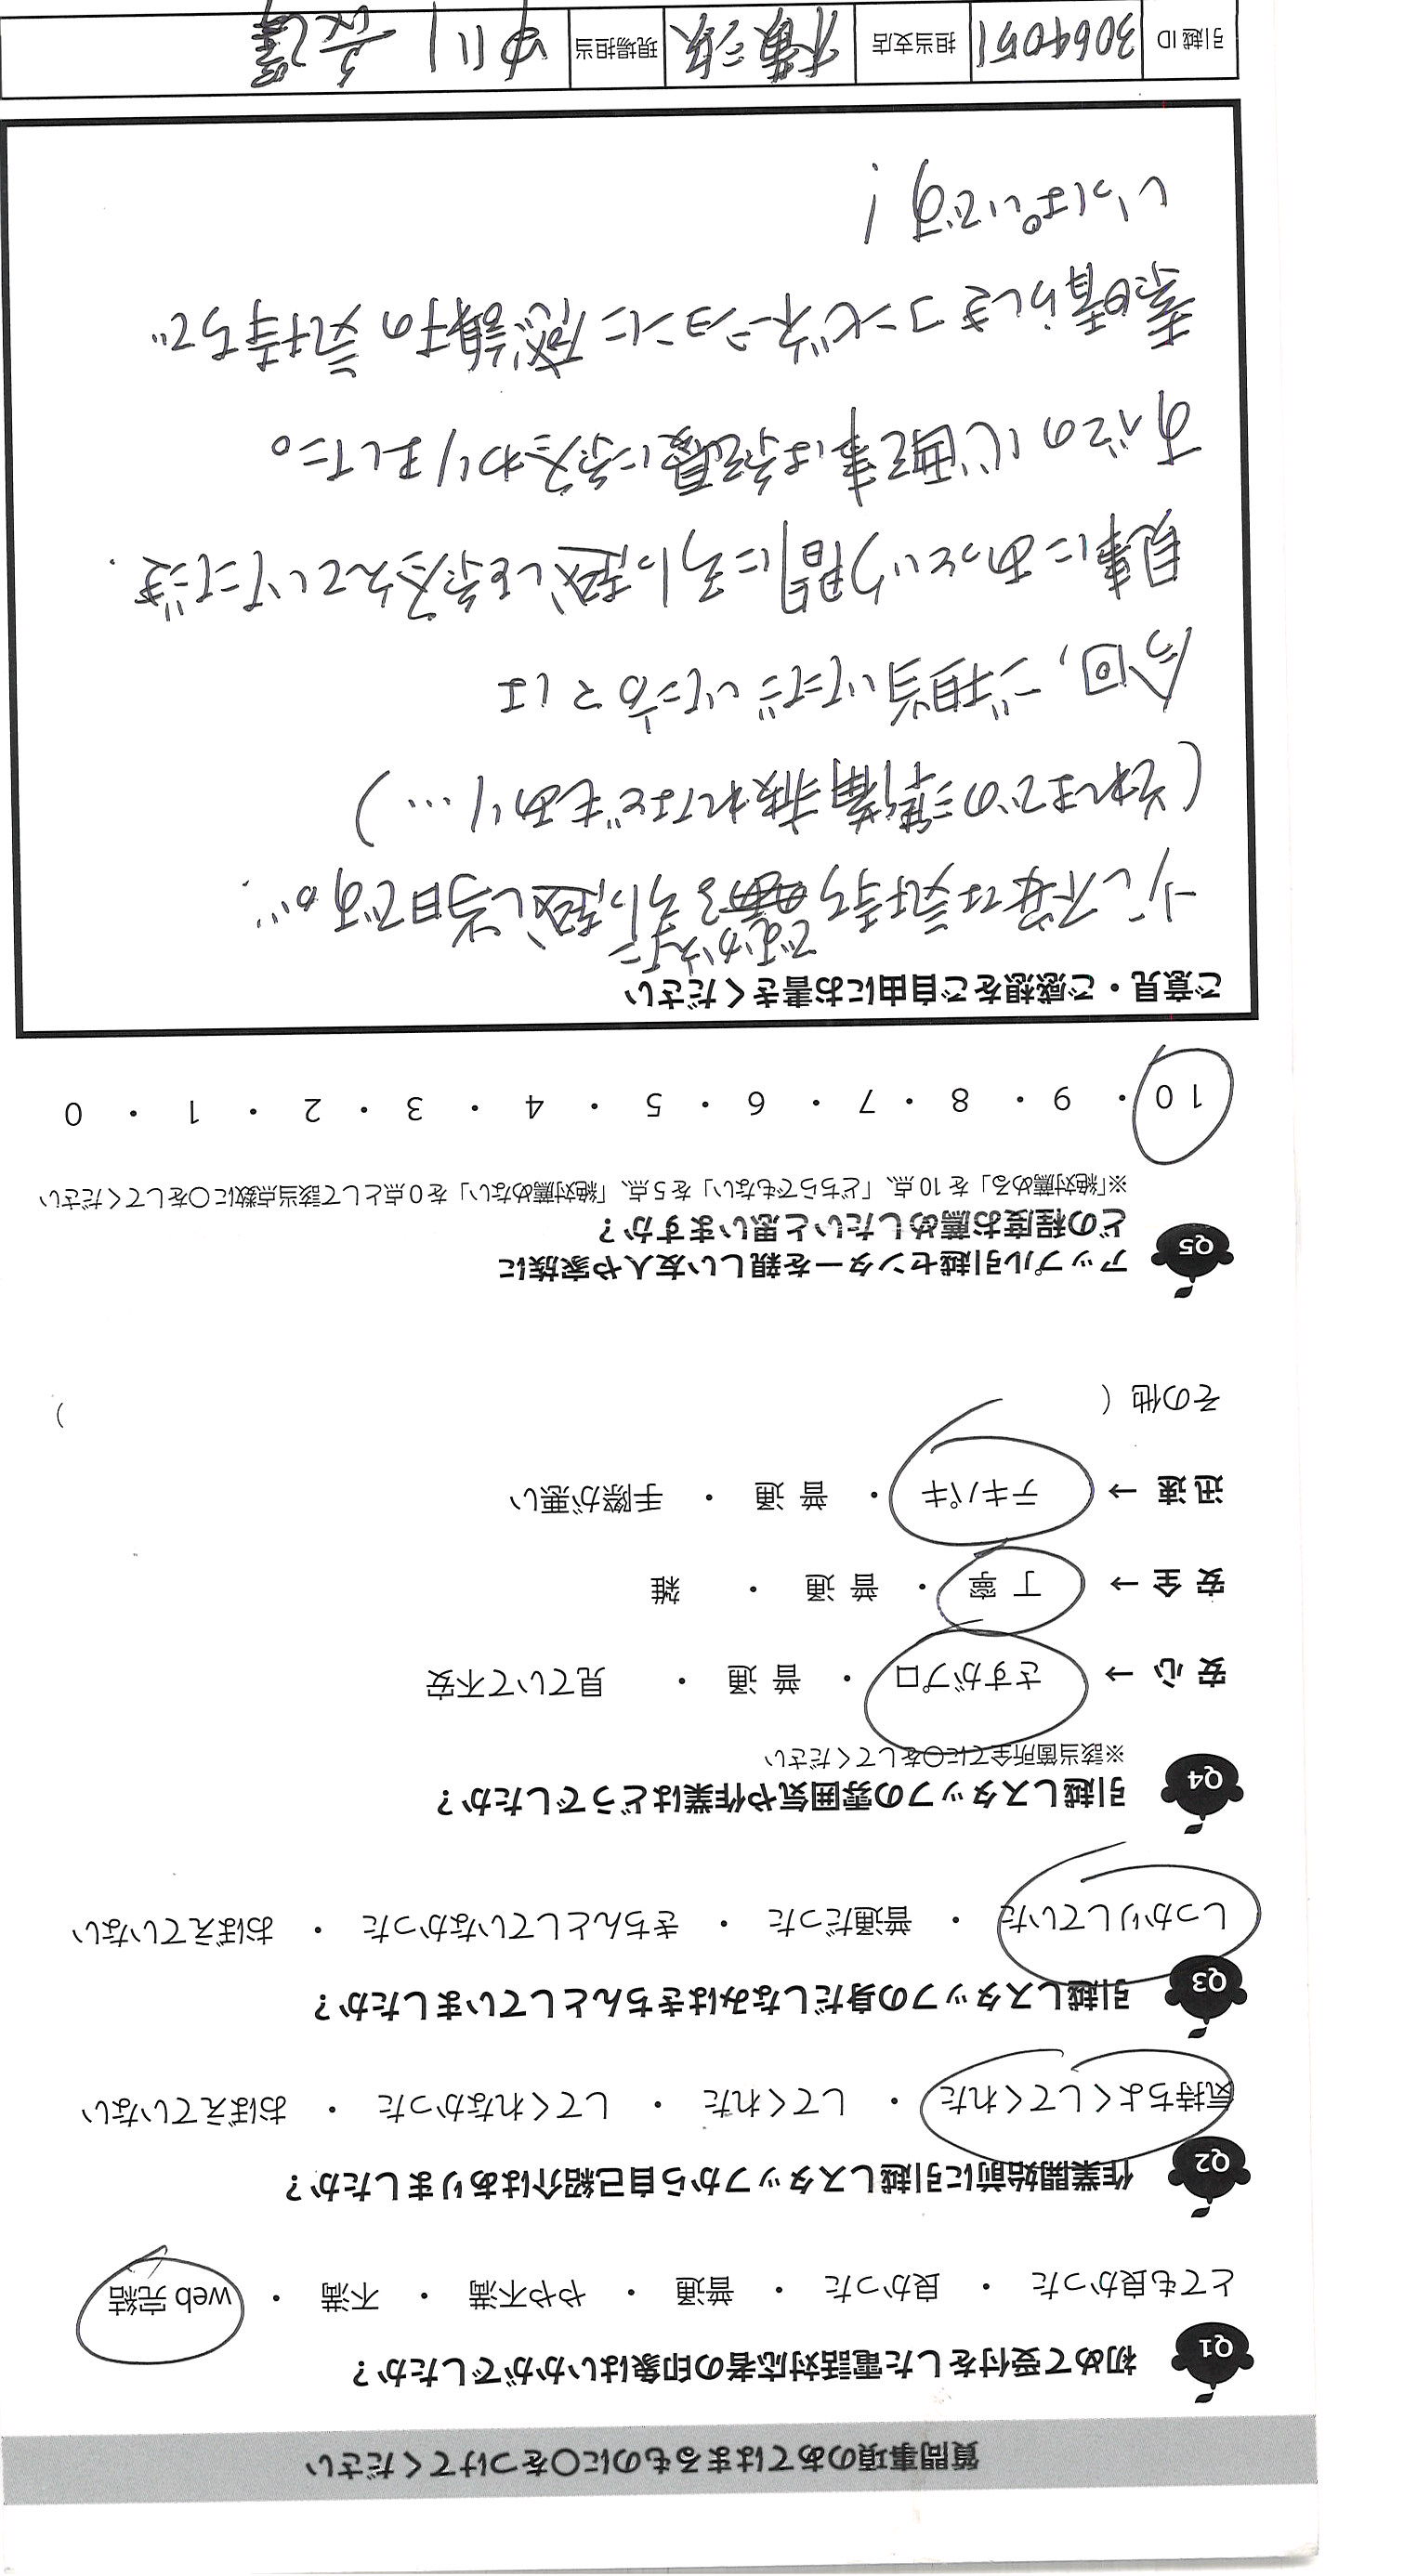 質問事項のあてはまるものに〇をつけてください
Q1 初めて受付をした電話対応者の印象はいかがでしたか?
とても良かった ・ 良かった ・ 普通 ・ やや不満 ・ 不満 ・ web 完結
Q2 作業開始前に引越しスタッフから自己紹介はありましたか?
気持ちよくしてくれた ・ してくれた ・ してくれなかった ・ おぼえていない
Q3 引越しスタッフの身だしなみはきちんとしていましたか?
しっかりしていた ・ 普通だった ・ きちんとしていなかった ・ おぼえていない
Q4 引越しスタッフの雰囲気や作業はどうでしたか?
※該当箇所全てに〇をしてください
安 心 → さすがプロ ・ 普 通 ・ 見ていて不安
安 全 → 丁 寧 ・ 普 通 ・ 雑
迅 速 → テキパキ ・ 普 通 ・ 手際が悪い
その他 ( )
Q5 アップル引越センターを親しい友人や家族に
どの程度お薦めしたいと思いますか?
※「絶対薦める」を 10 点、「どちらでもない」を 5 点、「絶対薦めない」を 0 点として該当点数に〇をしてください
10 ・ 9 ・ 8 ・ 7 ・ 6 ・ 5 ・ 4 ・ 3 ・ 2 ・ 1 ・ 0
ご意見・ご感想をご自由にお書きください
でむかえた
少し不安な気持ち 引っ越し当日ですが…
(それまでの準備疲れなどもあり…)
今回、ご担当いただいた方々は
見事にあっという間に引っ越しを終えていただき、
すべての心配事は綺麗に終わりました。
素晴らしきコンビネーションに感謝の気持ちで
いっぱいです!
引越 ID 3064051 担当支店 横浜 現場担当 中川